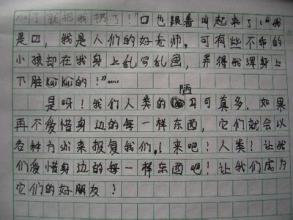 就把我摔了！口也跟着叫起来了："我
是口，我是人们的好老师，可有些不听的
小孩却在我身上乱写乱画，弄得我浑身上
下脏kāi kāi的！"……
陋
是呀！我们人类的习可真多，如果
再不爱惜身边的每一样东西，它们就会以
各种方式来报复我们，来吧！人类！让我
们爱惜身边的每一样东西吧！让我们成为
它们的好朋友！